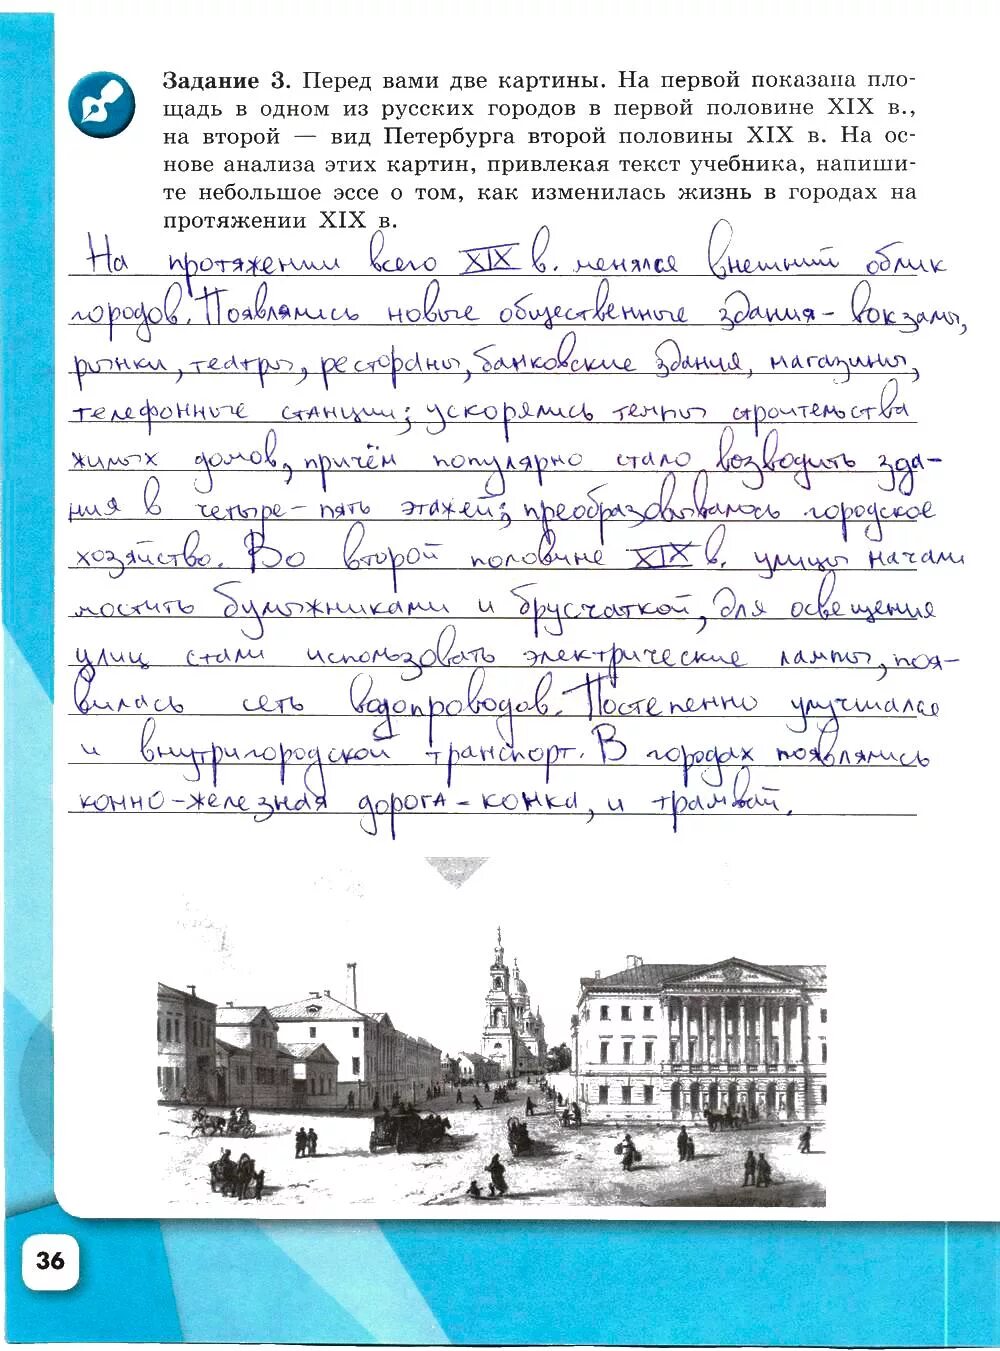 Задание 3. Перед вами две картины. На первой показана пло-
щадь в одном из русских городов в первой половине XIX в.,
на второй — вид Петербурга второй половины XIX в. На ос-
нове анализа этих картин, привлекая текст учебника, напиши-
те небольшое эссе о том, как изменилась жизнь в городах на
протяжении XIX в.
На протяжении всего XIX в. менялся внешний облик
городов. Появлялись новые общественные здания - вокзалы,
рынки, театры, рестораны, банковские здания, магазины,
телефонные станции; ускорялись темпы строительства
жилых домов, причём популярно стало возводить зда-
ния в четыре-пять этажей; преобразовывалось городское
хозяйство. Во второй половине XIX в. улицы начали
мостить булыжниками и брусчаткой, для освещения
улиц стали использовать электрические лампы, поя-
вилась сеть водопроводов. Постепенно улучшался
и внутригородской транспорт. В городах появлялись
конно-железная дорога - конка, и трамвай.
36